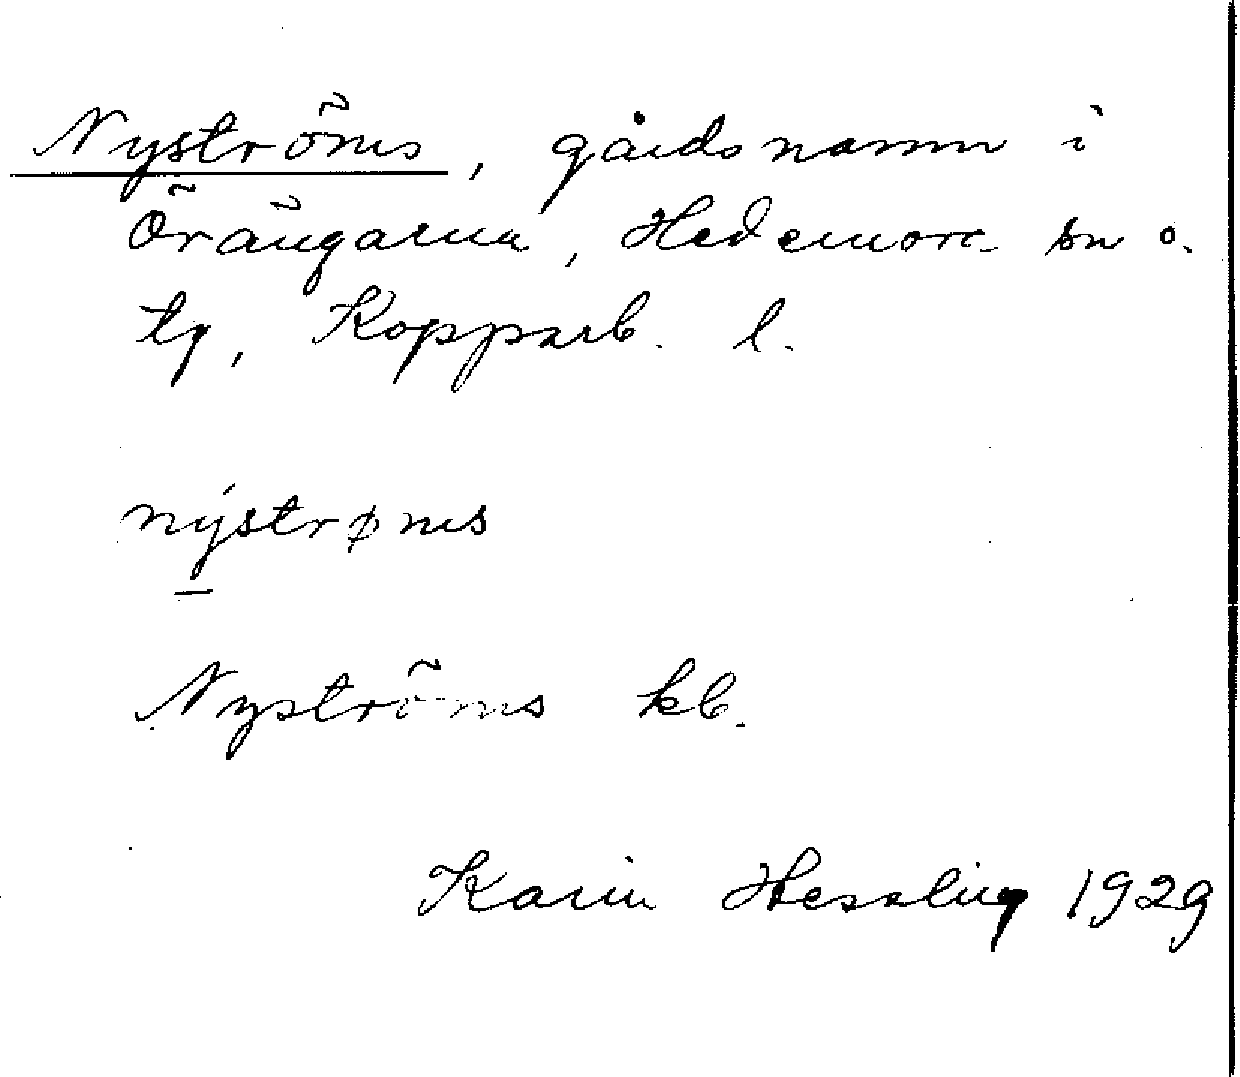 Nyströms, gårdsnamn i
Örängarna, Hedemora sn o.
tg, Kopparb. l.
nýstrøms
Nyströms kb.
Karin Hessling 1929